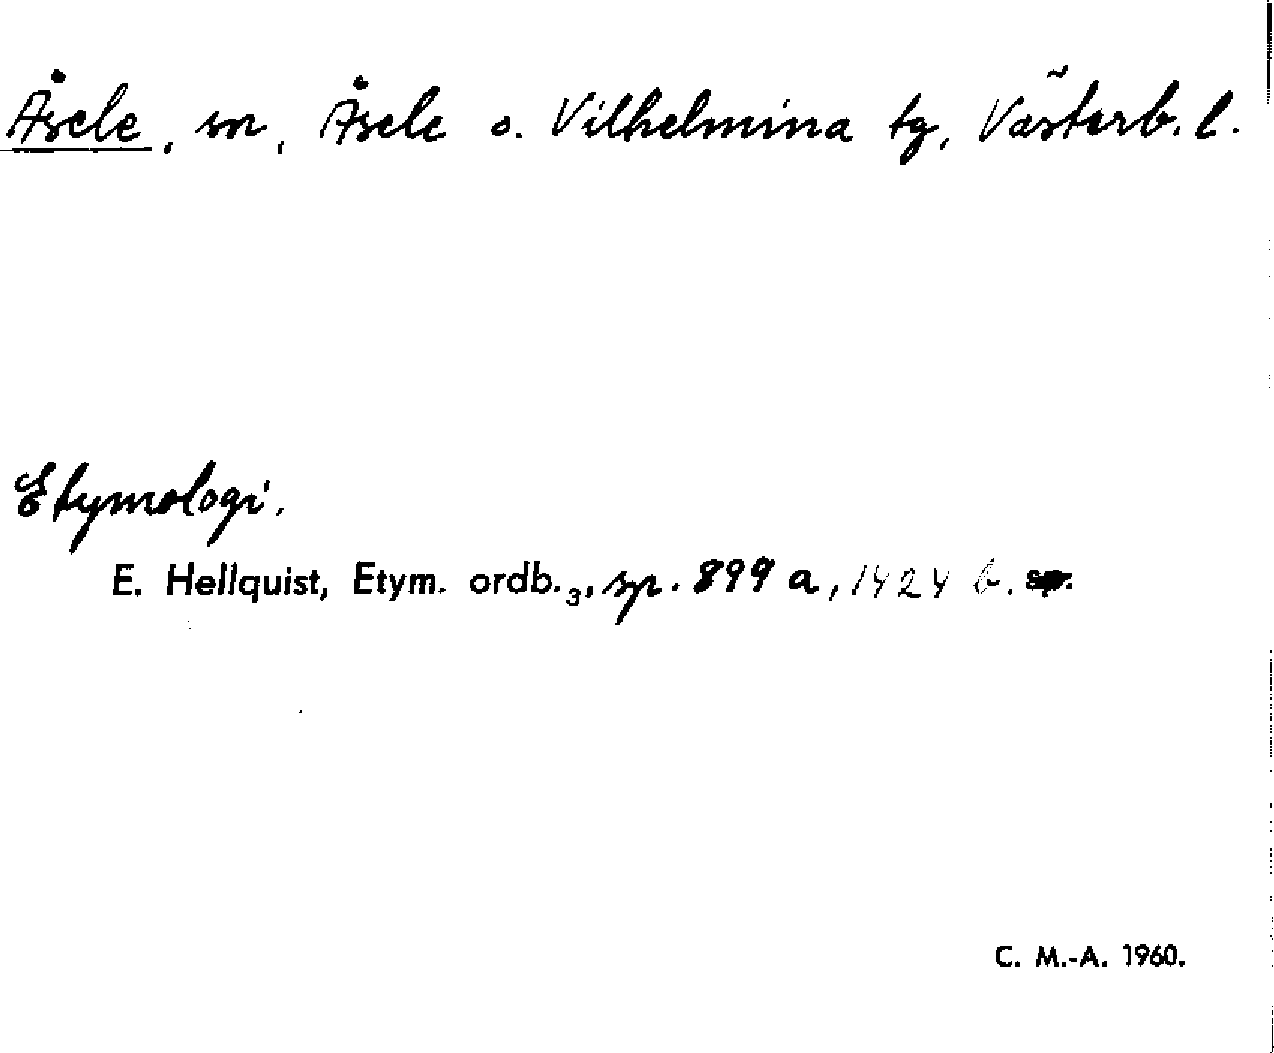 Åsele, sn, Åsele o. Vilhelmina tg, Västerb. l.
Etymologi.
E. Hellquist, Etym. ordb.₃, sp. 899 a, 1424 b.
C. M.-A. 1960.